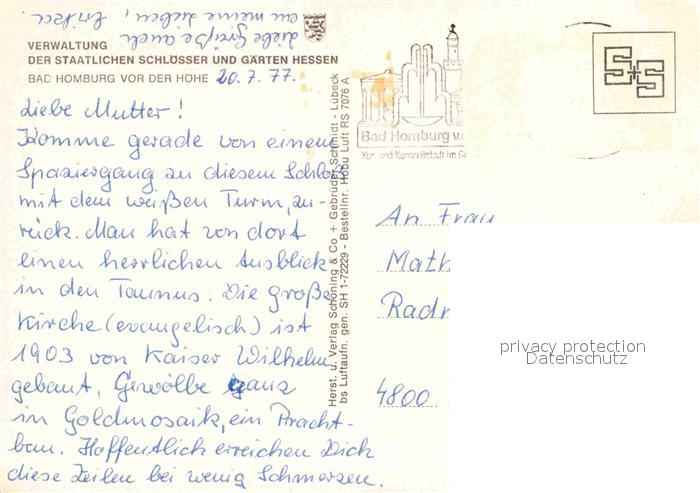 VERWALTUNG
DER STAATLICHEN SCHLÖSSER UND GÄRTEN HESSEN
BAD HOMBURG VOR DER HÖHE 20.7.77.
Liebe Mutter!
Komme gerade von einem
Spaziergang zu diesem Schloß
mit dem weißen Turm, zu-
rück. Man hat von dort
einen herrlichen Ausblick
in den Taunus. Die große
Kirche (evangelisch) ist
1903 von Kaiser Wilhelm
gebaut, Gewölbe ganz
in Goldmosaik, ein Pracht-
bau. Hoffentlich erreichen Dich
diese Zeilen bei wenig Schmerzen.
liebe Grüße auch
an meine Lieben,
Herst. u. Verlag Schöning & Co + Gebrüder Schmidt - Lübeck
bs Luftaufn. gen. SH 1-72229 - Bestellnr. Hobu Luft RS 7076 A
Bad Homburg v.
Kur- und Kongreßstadt im
S+S
An Frau
Math
Radr
4800
privacy protection
Datenschutz